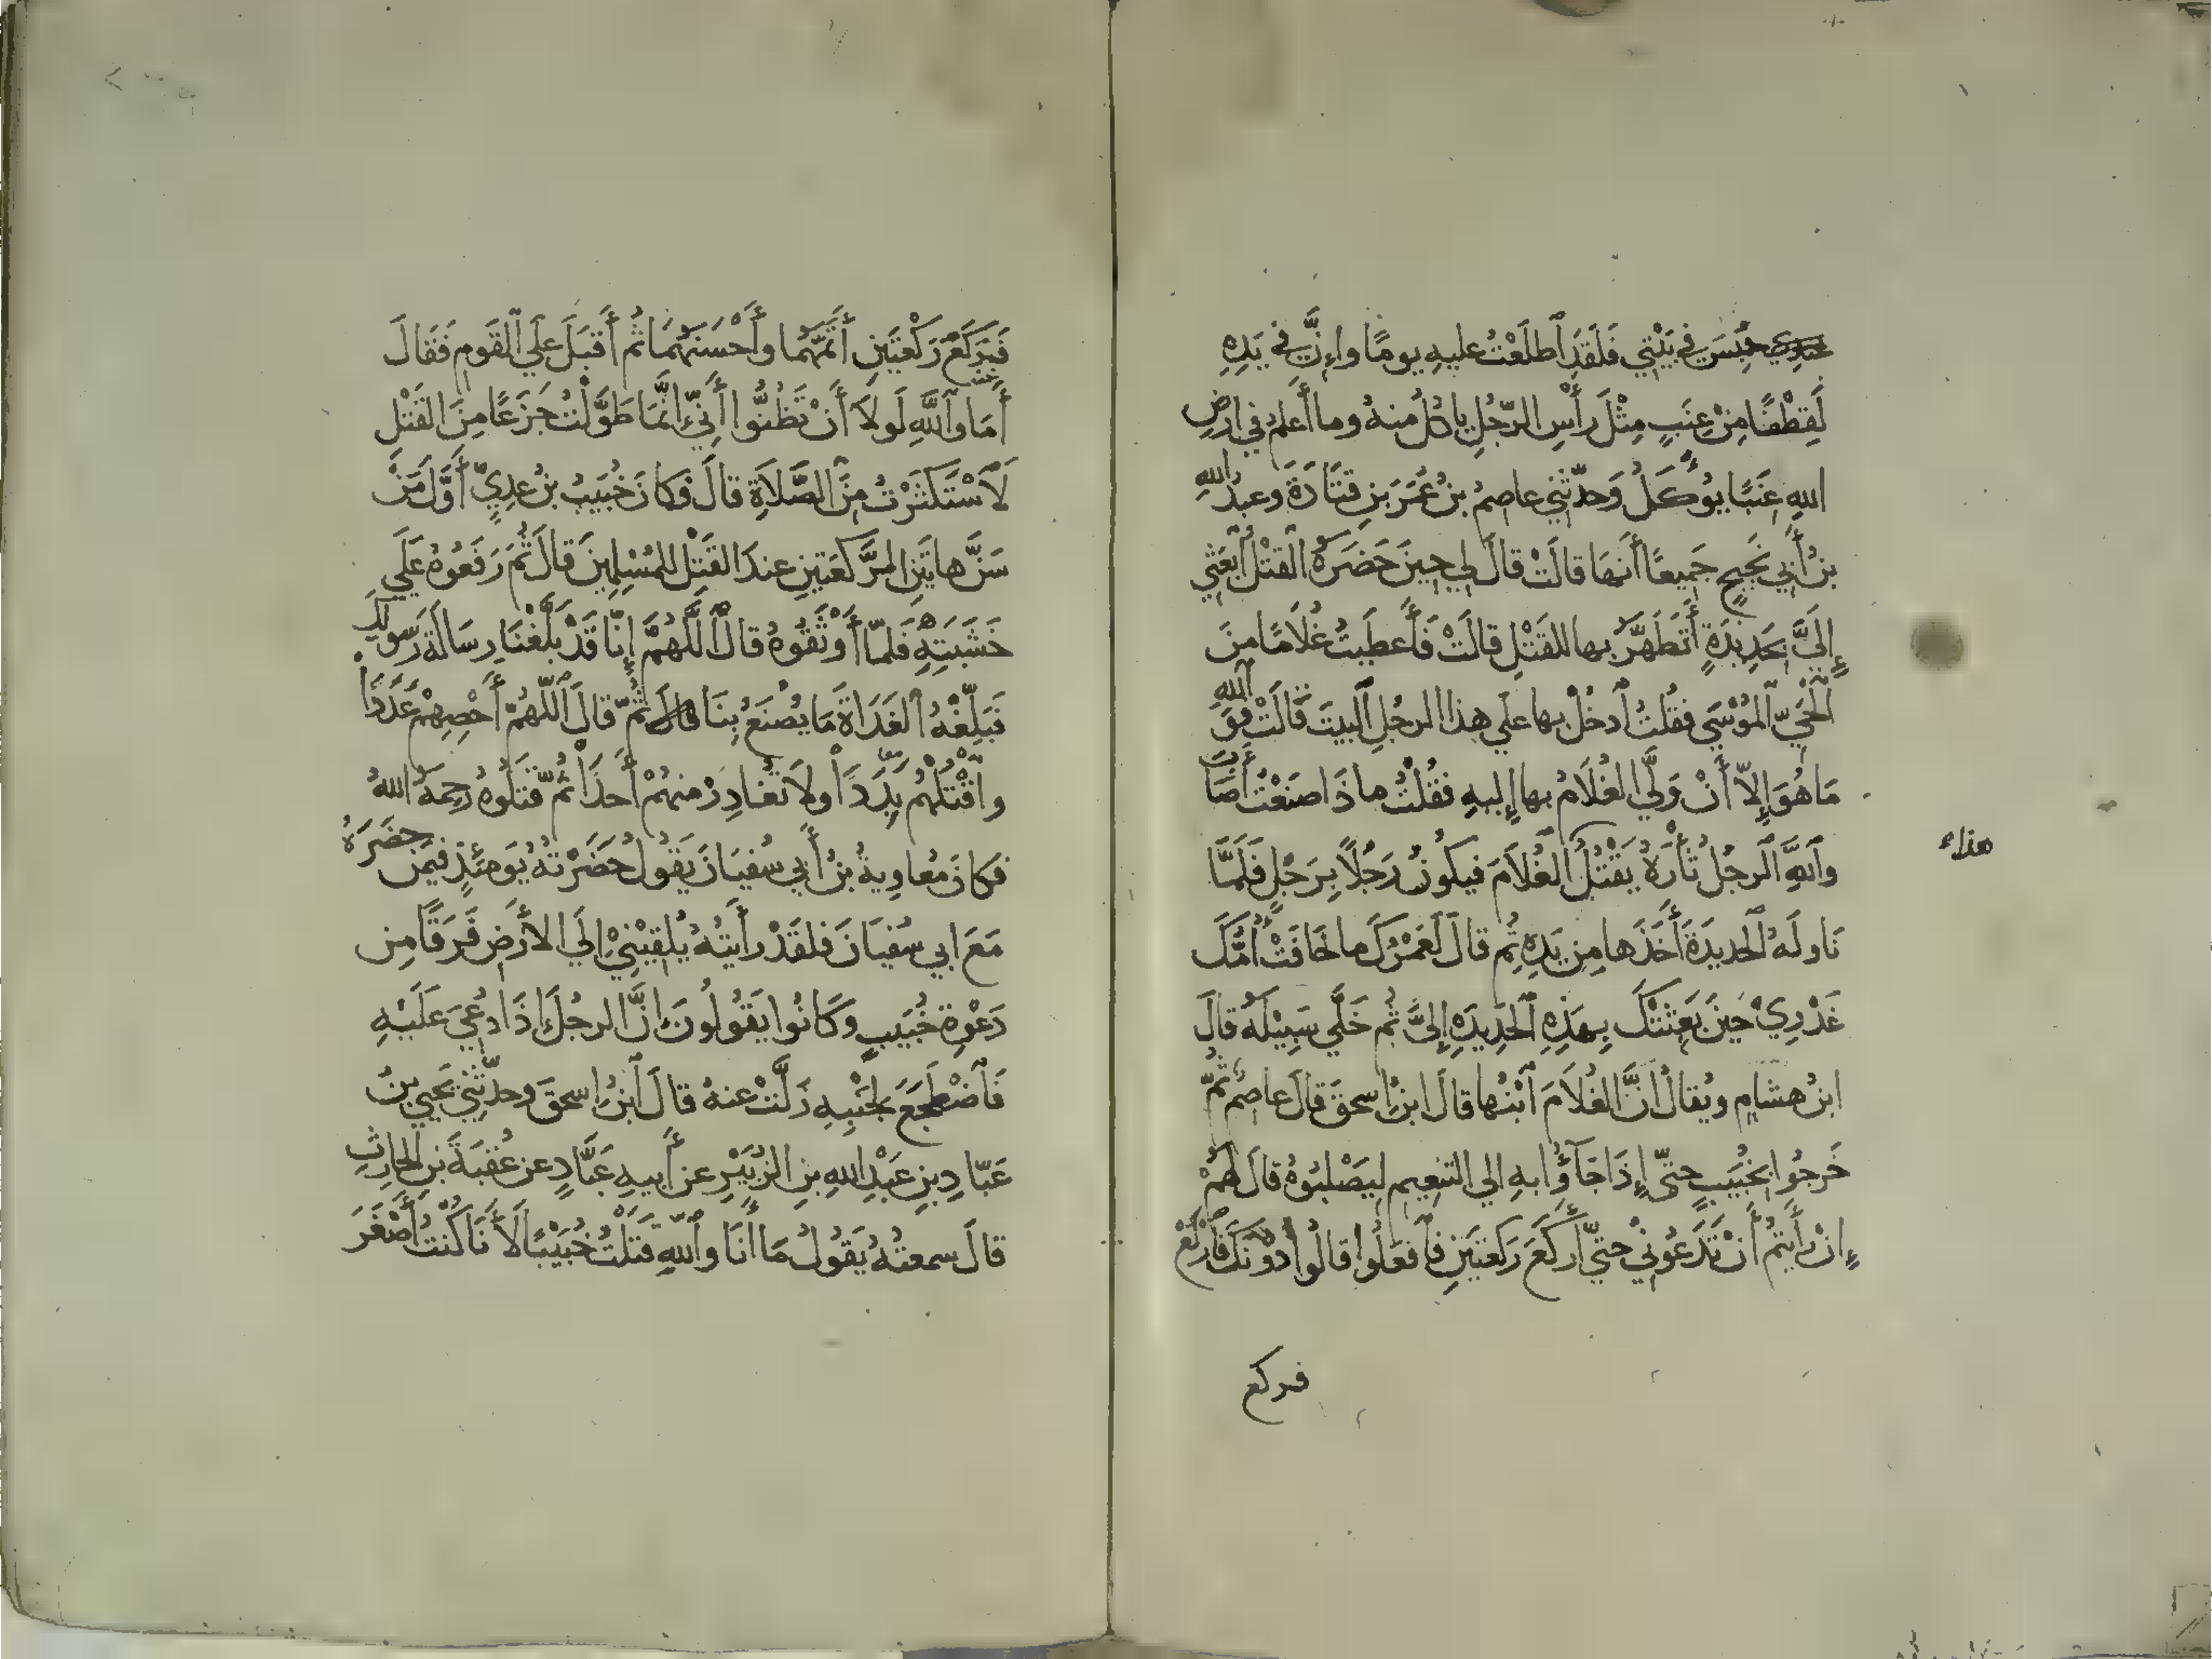 عندي حُبِسَ في بَيْتي فَلَقَدِ ٱطَّلَعْتُ عليهِ يومًا وإِنَّ في يَدِهِ
لَقِطْفًا مِنْ عِنَبٍ مِثْلَ رَأْسِ الرّجُلِ ياكُلُ منهُ وما أَعلمُ في ارضِ
اللهِ عِنَبًا يؤُكَلُ وَحدّثَني عاصمُ بنُ عُمَرَ بنِ قتَادَةَ وعبدُ اللهِ
بنُ أَبي نَجيحٍ جَميعًا أَنهَا قالَتْ قالَ لي حينَ حَضَرَهُ ٱلقتْلُ ٱبعَثي
إِلَيَّ بحَديدَةٍ أَتَطَهَّرُ بها للقَتْلِ قالَتْ فَأَعطَيتُ غُلَامًا مِنَ
ٱلحَيِّ ٱلمُوْسَى فقُلتُ ٱدخُلْ بها علي هذا الرجُلِ ٱلبيتَ قَالَتْ فَوَ ٱللهِ
مَا هُوَ إِلاّ أَنْ وَلَّى الغُلَامُ بها إِليهِ فقُلْتُ ما ذَا صنَعْتُ أَصَابَ
وٱللهِ ٱلرجُلُ ثَأْرَهُ يَقْتُلُ ٱلغُلَامَ فيكونُ رَجُلًا بِرَجُلٍ فَلَمَّا
هذاء
نَاولَهُ ٱلحديدَةَ أَخَذَها مِن يَدِهِ ثُم قالَ لَعَمْرُكَ ما خَافَتْ أُمُّكَ
غَدْرِيْ حينَ بَعَثَتْكَ بِهذِهِ ٱلحَدِيدَهِ إِليَّ ثُم خَلَّي سَبِيْلَهُ قالَ
ابنُ هشامٍ ويُقالُ انَّ الغُلَامَ ٱبْنُها قالَ ابنُ اسحقَ قالَ عاصمٌ ثُمّ
خَرجُوا بخُبَيبٍ حتّي إِذَا جَآؤُا بهِ الي التنعِيم ليَصْلبُوهُ قالَ لهُمْ
إِنْ رأَيتُمْ أَنْ تَدَعُوني حتّي أَركَعَ رَكعتَينِ فٱفعَلُوا قالُوا دُونَكَ فَارْكَعْ
فركع
فَرَكَعَ رَكْعَتَينِ أَتَمَّهُما وأَحْسَنَهُمَا ثُم أَقبَلَ علَي ٱلقَومِ فَقَالَ
أَمَا وٱللَّهِ لَولَا أَنْ تَظُنُّوا أَنِّيْ إِنَّمَا طَوَّلْتُ جَزَعًا مِنَ القَتْلِ
لَٱسْتَكثَرْتُ مِنَ ٱلصَّلَاةِ قالَ فكانَ خُبَيبُ بنُ عدِيٍّ أَوَّلَ مَنْ
سَنَّ هاتَينِ الرَّكعَتينِ عندَ القَتْلِ للمُسْلِمينَ قالَ ثُمَ رَفَعُوهُ علَي
خَشَبَتِهِ فلمّا أَوْثَقُوهُ قالَ ٱللَّهُمَّ إِنّا قَدْ بَلَّغْنَا رِسَالَةَ رَسولِكَ
فَبَلِّغْهُ ٱلغَدَاةَ مَا يُصْنَعُ بِنَا قالَ ثُمّ قالَ ٱللّهُمّ أَحْصِهِمْ عَدَدًا
واقْتُلْهُم بَِدَدًا ولَا تُغادِرْ منهُمْ أَحدًا ثُمّ قتَلُوهُ رحِمَهُ اللهُ
فكانَ مُعاوِيةُ بنُ أَبي سُفيَانَ يَقُولُ حَضَرْتُهُ يَومَئِذٍ فيمَنْ حضَرَهُ
مَعَ ابي سُفيَانَ فلقَدْ رأَيتُهُ يُلقِيْنِيْ إِلَي الأَرضِ فَرَقًا مِن
دَعْوةِ خُبَيبٍ وكَانُوا يَقُولُونَ إِنَّ الرجُلَ إِذَا دُعيَ عَلَيْهِ
فَٱضْطَجَعَ لجَنْبِهِ زَلَّتْ عنهُ قالَ ٱبنُ اسحقَ وحدّثَني يَحيي بنُ
عَبّادِ بنِ عَبْدِ اللهِ بنِ الزُبَيْرِ عن أَبيهِ عَبَّادٍ عن عُقبَةَ بنِ الحارِثِ
قالَ سمعتُهُ يَقولُ مَا أَنَا وٱللهِ قتَلْتُ خُبَيْبًا لَأَنَا كُنْتُ أَصْغَرَ